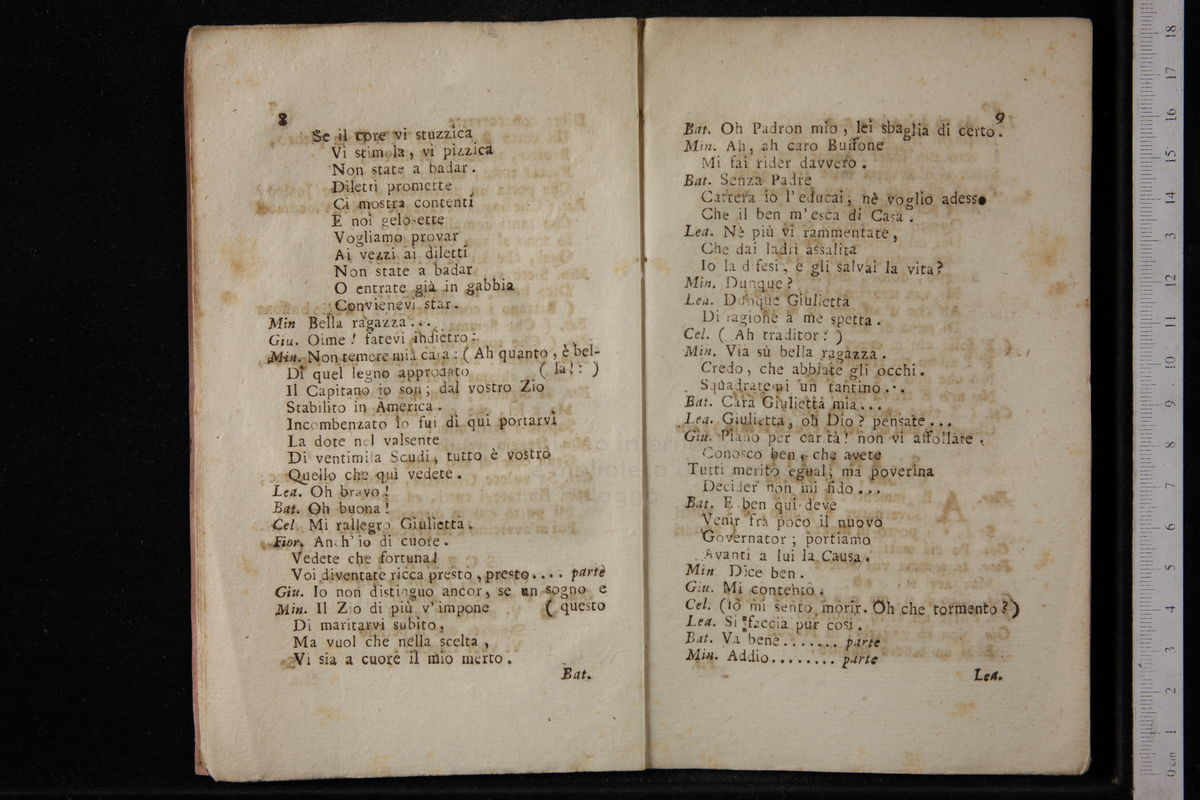 8
Se il core vi stuzzica
Vi stimola, vi pizzica
Non state a badar.
Diletti promette
Ci mostra contenti
E noi gelosette
Vogliamo provar
Ai vezzi ai diletti
Non state a badar
O entrate già in gabbia
Convienevi star.
Min Bella ragazza...
Giu. Oime! fatevi indietro:
Min. Non temere mia cara: (Ah quanto, è bel-
Di quel legno approdato ( la!: )
Il Capitano io son; dal vostro Zio
Stabilito in America.
Incombenzato io fui di qui portarvi
La dote nel valsente
Di ventimila Scudi, tutto è vostro
Quello che qui vedete.
Lea. Oh bravo!
Bat. Oh buona!
Cel. Mi rallegro Giulietta.
Fior. Anch'io di cuore.
Vedete che fortuna!
Voi diventate ricca presto, presto.... parte
Giu. Io non distinguo ancor, se un sogno e
Min. Il Zio di più v'impone ( questo
Di maritarvi subito,
Ma vuol che nella scelta,
Vi sia a cuore il mio merto.
Bat.
9
Bat. Oh Padron mio, lei sbaglia di certo.
Min. Ah, ah caro Buffone
Mi fai rider davvero.
Bat. Senza Padre
Cattera io l'educai, nè voglio adesso
Che il ben m'esca di Casa.
Lea. Nè più vi rammentate,
Che dai ladri assalita
Io la difesi, e gli salvai la vita?
Min. Dunque?
Lea. Dunque Giulietta
Di ragione a me spetta.
Cel. ( Ah traditor! )
Min. Via sù bella ragazza.
Credo, che abbiate gli occhi.
Squadratemi un tantino...
Bat. Cara Giulietta mia...
Lea. Giulietta, oh Dio? pensate...
Giu. Piano per carità! non vi affollate.
Conosco ben, che avete
Tutti merito egual; ma poverina
Decider non mi fido...
Bat. E ben qui deve
Venir frà poco il nuovo
Governator; portiamo
Avanti a lui la Causa.
Min Dice ben.
Giu. Mi contento.
Cel. (Io mi sento morir. Oh che tormento?)
Lea. Si faccia pur così.
Bat. Va bene....... parte
Min. Addio........ parte
Lea.